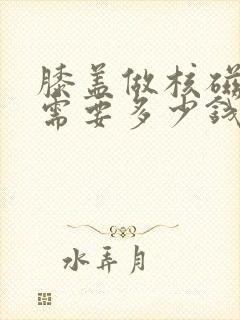 膝盖做核磁
需要多少钱
水弄月